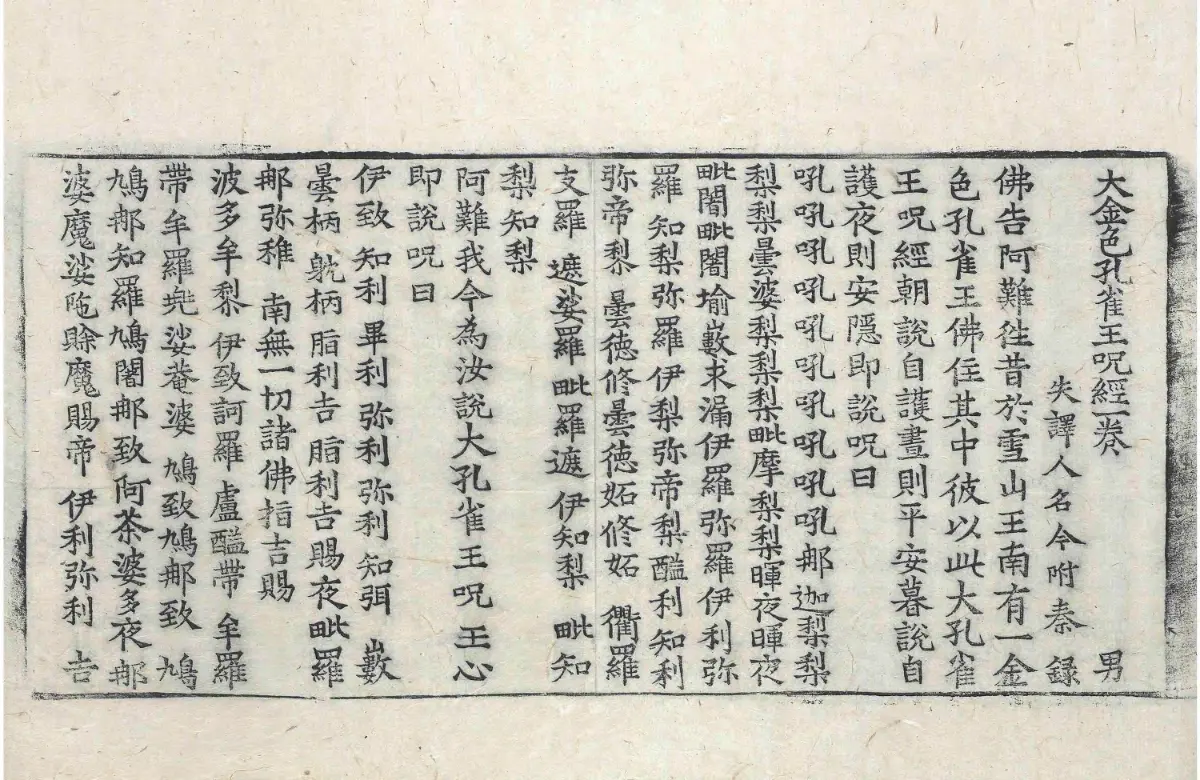 大金色孔雀王呪經一卷 男
失譯人名今附秦錄
佛告阿難徃昔於雪山王南有一金
色孔雀王佛住其中彼以此大孔雀
王呪經朝說自護晝則平安暮說自
護夜則安隱即說呪曰
吼吼吼吼吼吼吼吼吼𨚗迦梨梨
梨梨曇婆梨梨梨毗摩梨梨暉夜暉夜
毗闍毗闍塕藪求漏伊羅弥羅伊利弥
羅 知梨弥羅伊梨弥帝梨醯利知利
弥帝梨 曇德修曇德妬修妬 衢羅
支羅 遮娑羅 毗羅遮 伊知梨 毗知
梨知梨
阿難我今為汝說大孔雀王呪王心
即說呪曰
伊致 知利 畢利 弥利弥利 知弭 藪
曇柄 躭柄 脂利吉 脂利吉賜夜毗羅
𨚗弥稚 南無一切諸佛指吉賜
波多牟梨 伊致訶羅 盧醯帶 牟羅
帶牟羅𠒎娑菴婆 鳩致鳩𨚗致 鳩
鳩𨚗知羅鳩闍𨚗致 阿荼婆多夜𨚗
婆魔娑陁賒魔賜帝 伊利弥利 吉